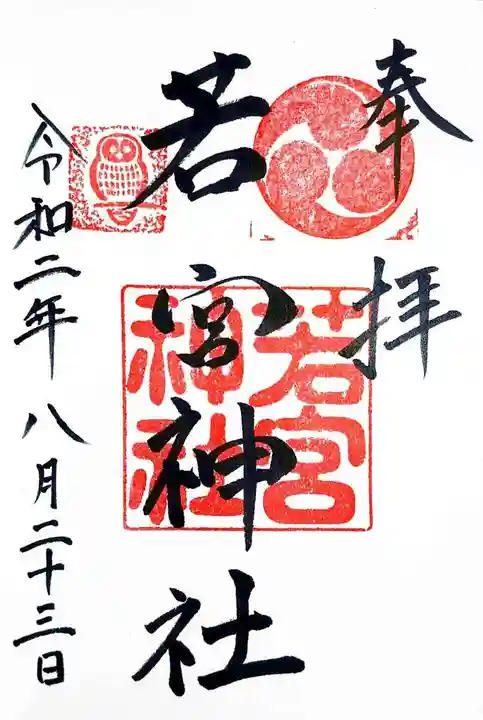 奉拝
若宮神社
若宮神社
令和二年八月二十三日